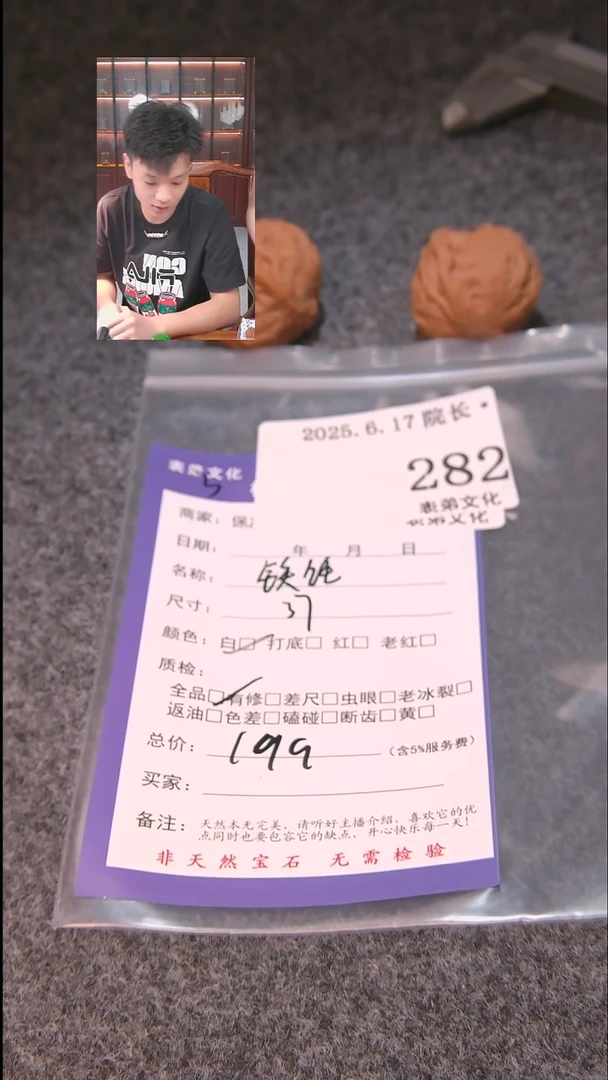 2025.6.17 院长
282
表弟文化
表弟文化
表弟文化
5
商家：保
日期： 年 月 日
名称：
尺寸： 37
颜色：白□ 打底□ 红□ 老红□
质检：
全品□有修□差尺□虫眼□老冰裂□
返油□色差□磕碰□断齿□黄□
总价： 199 （含5%服务费）
买家：
备注：天然本无完美，请听好主播介绍，喜欢它的优
点同时也要包容它的缺点，开心快乐每一天！
非天然宝石 无需检验